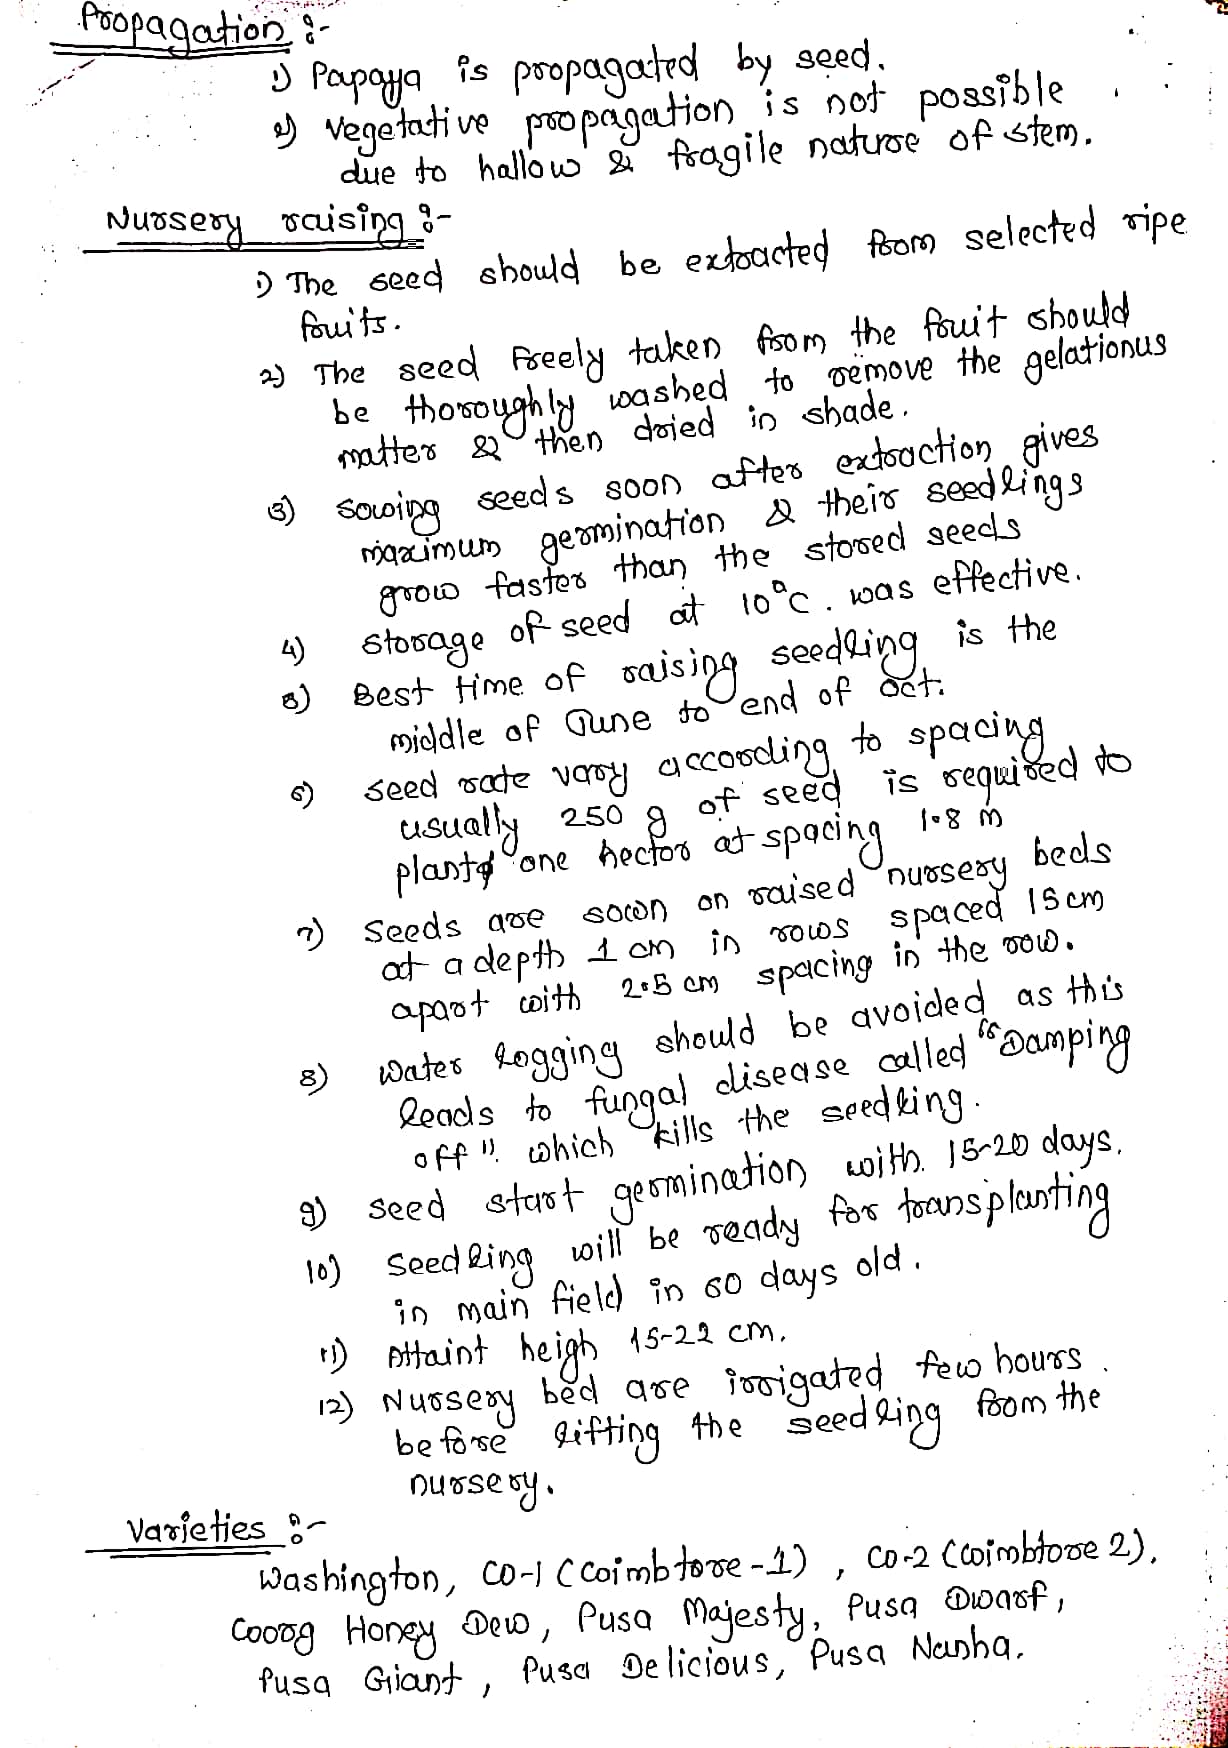 Propagation :-
1) Papaya is propagated by seed.
2) Vegetative propagation is not possible
due to hallow & fragile nature of stem.
Nursery raising :-
1) The seed should be extracted from selected ripe
fruits.
2) The seed freely taken from the fruit should
be thoroughly washed to remove the gelationus
matter & then dried in shade.
3) Sowing seeds soon after extraction gives
maximum germination & their seedlings
grow faster than the stored seeds
4) Storage of seed at 10°C. was effective.
5) Best time of raising seedling is the
middle of June to end of Oct.
6) Seed rate vary according to spacing
usually 250 g of seed is required to
plant one hector at spacing 1.8 m
7) Seeds are sown on raised nursery beds
at a depth 1 cm in rows spaced 15 cm
apart with 2.5 cm spacing in the row.
8) Water logging should be avoided as this
leads to fungal disease called "Damping
off". which kills the seedling.
9) Seed start germination with. 15-20 days.
10) Seedling will be ready for transplanting
in main field in 60 days old.
11) Attaint heigh 15-22 cm.
12) Nursery bed are irrigated few hours.
before lifting the seedling from the
nursery.
Varieties :-
Washington, CO-1 (Coimbtore-1), CO-2 (Coimbtore 2),
Coorg Honey Dew, Pusa Majesty, Pusa Dwarf,
Pusa Giant, Pusa Delicious, Pusa Nanha.